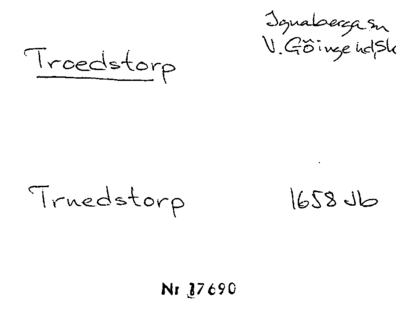 Troedstorp
Ignaberga sn
V. Göinge hd, Sk
Truedstorp
1658 Jb
Nr 17690